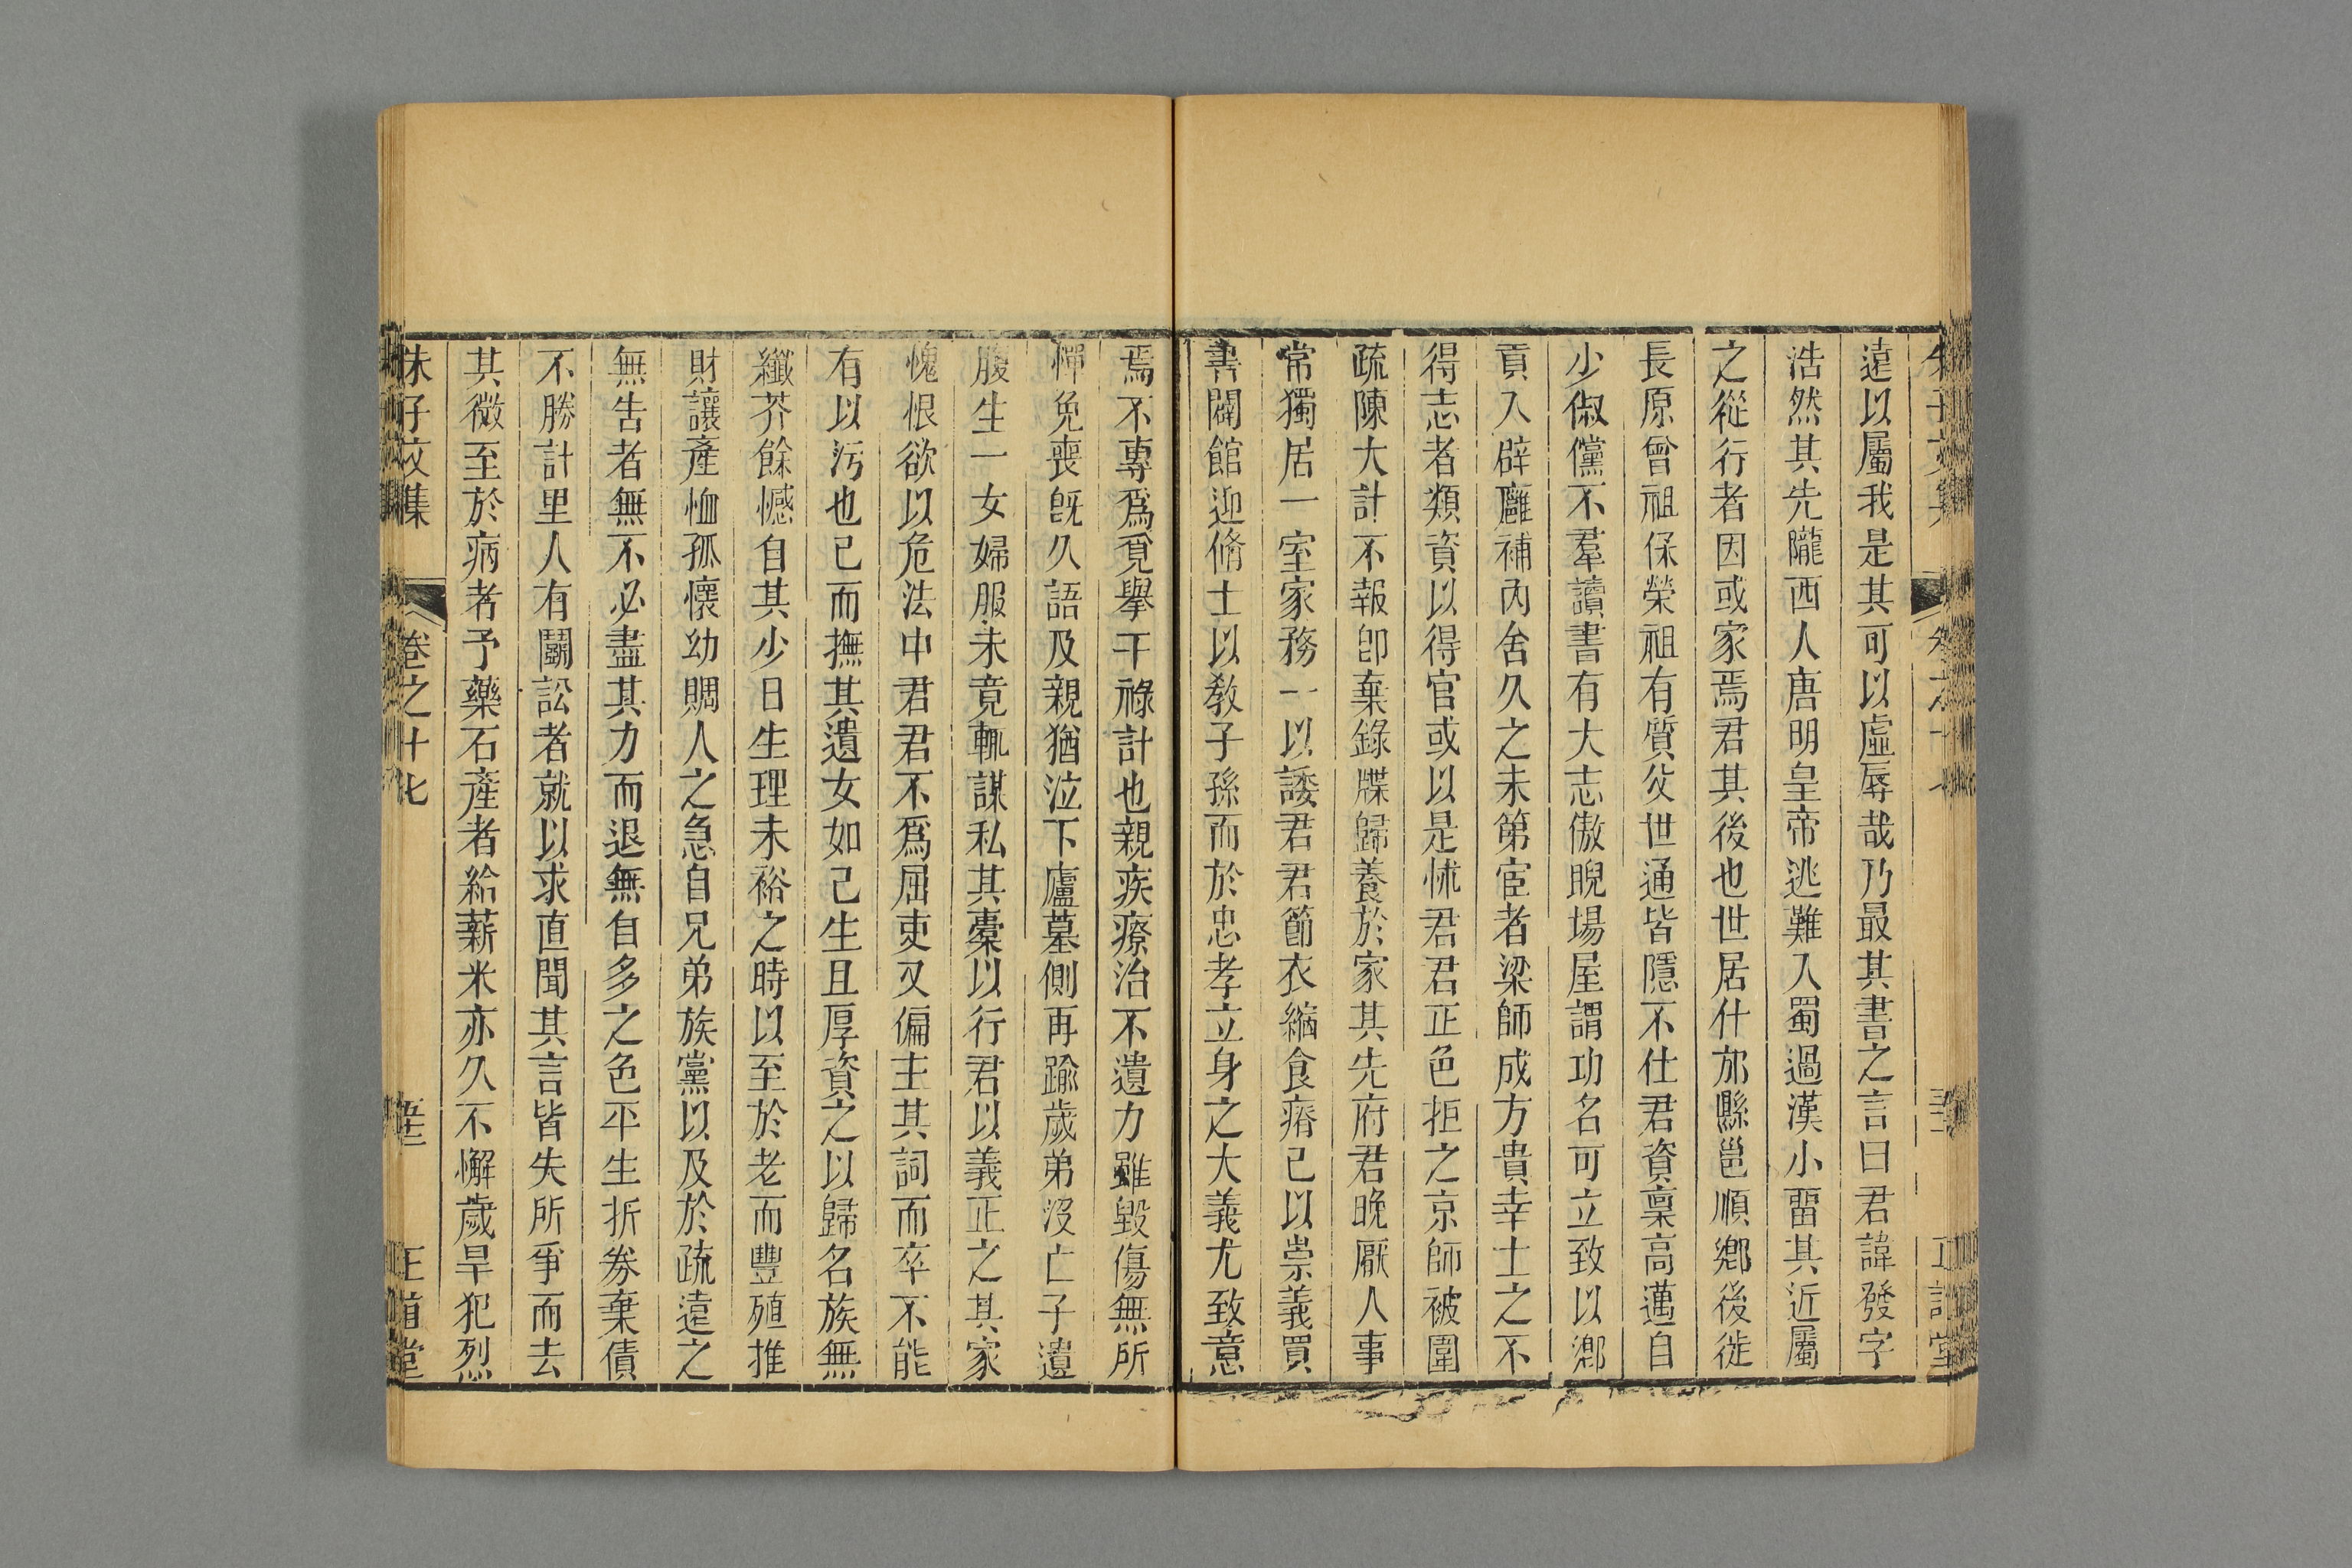 遠以屬我是其可以虛辱哉乃最其書之言曰君諱發字
浩然其先隴西人唐明皇帝逃難入蜀過漢小留其近屬
之從行者因或家焉君其後也世居什邡縣邕順鄉後徙
長原曾祖保榮祖有質父世通皆隱不仕君資稟高邁自
少俶儻不羣讀書有大志傲睨場屋謂功名可立致以鄉
貢入辟廱補內舍久之未第宦者梁師成方貴幸士之不
得志者類資以得官或以是怵君君正色拒之京師被圍
疏陳大計不報卽棄錄牒歸養於家其先府君晚厭人事
常獨居一室家務一以諉君君節衣縮食瘠己以崇義買
書闢館迎脩士以敎子孫而於忠孝立身之大義尤致意
焉不專爲覓舉干祿計也親疾療治不遺力雖毀傷無所
憚免喪旣久語及親猶泣下廬墓側再踰歲弟沒亡子遺
腹生一女婦服未竟輒謀私其橐以行君以義正之其家
愧恨欲以危法中君君不爲屈吏又偏主其詞而卒不能
有以污也已而撫其遺女如己生且厚資之以歸名族無
纖芥餘憾自其少日生理未裕之時以至於老而豐殖推
財讓產恤孤懷幼賙人之急自兄弟族黨以及於疏遠之
無告者無不必盡其力而退無自多之色平生折券棄債
不勝計里人有鬭訟者就以求直聞其言皆失所爭而去
其微至於病者予藥石產者給薪米亦久不懈歲旱犯烈
朱子文集 卷之十七 正誼堂